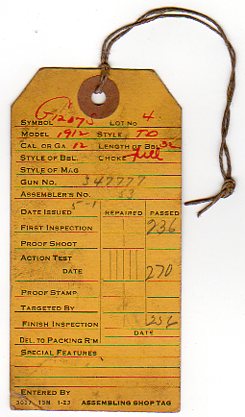 SYMBOL G1207S LOT NO 4
MODEL 1912 STYLE TD
CAL. OR GA. 12 LENGTH OF BBL. 32
STYLE OF BBL. CHOKE full
STYLE OF MAG
GUN NO. 347777
ASSEMBLER'S NO. 53
DATE ISSUED 5-1 REPAIRED PASSED
FIRST INSPECTION 236
PROOF SHOOT
ACTION TEST
DATE 270
PROOF STAMP
TARGETED BY
FINISH INSPECTION 256
DEL. TO PACKING R'M DATE
SPECIAL FEATURES
ENTERED BY
3037 15M 1-23 ASSEMBLING SHOP TAG